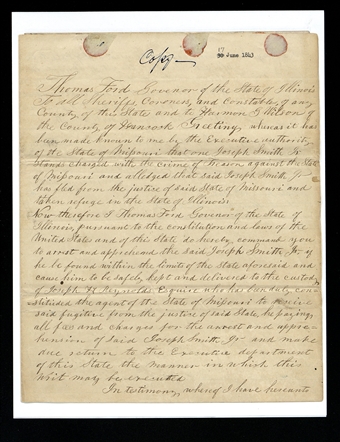 Copy
17
30 June 1843
Thomas Ford Governor of the State of Illinois
To all Sheriffs, Coroners, and Constables of any
County of this State and to Harmon T Wilson of
the County of Hancock Greeting whereas it has
been made known to me by the Executive authority
of the State of Missouri that one Joseph Smith Jr
stands charged with the crime of Treason against the State
of Missouri and alledged that said Joseph Smith Jr
has fled from the justice of said State of Missouri and
taken refuge in the State of Illinois
Now therefore I Thomas Ford Governor of the State of
Illinois pursuant to the constitution and laws of the
United States and of this State do hereby command you
to arrest and apprehend the said Joseph Smith Jr if
he be found within the limits of the State aforesaid and
cause him to be safely kept and delivered to the custody
of Joseph H Reynolds Esquire who has been duly con-
stituted the agent of the State of Missouri to receive
said fugitive from the justice of said State he paying
all fees and charges for the arrest and appre-
hension of said Joseph Smith Jr and make
due return to the Executive department
of this State the manner in which this
writ may be executed
In testimony whereof I have hereunto